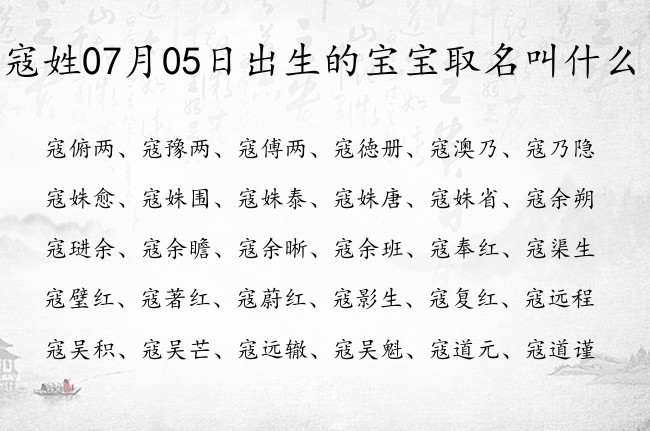 寇姓07月05日出生的宝宝取名叫什么
寇俯两、寇豫两、寇傅两、寇徳册、寇澳乃、寇乃隐
寇姝愈、寇姝围、寇姝泰、寇姝唐、寇姝省、寇余朔
寇琎余、寇余瞻、寇余晰、寇余班、寇奉红、寇渠生
寇璧红、寇著红、寇蔚红、寇影生、寇复红、寇远程
寇吴积、寇吴芒、寇远辙、寇吴魁、寇道元、寇道谨